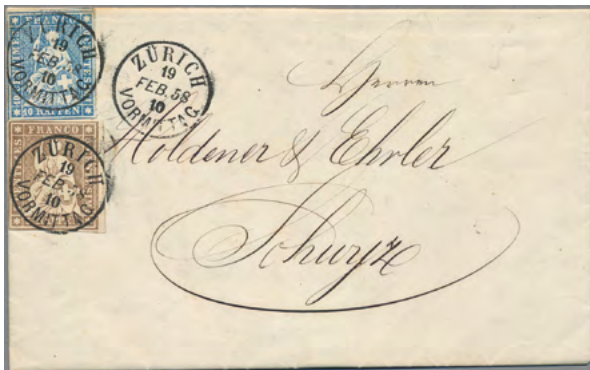 ZÜRICH
19
FEB.58
10
VORMITTAG
10 RAPPEN
FRANCO
ZÜRICH
19
FEB.
10
VORMITTAG
ZÜRICH
19
FEB.58
10
VORMITTAG
Herren
Holdener & Ehrler
Schwyz